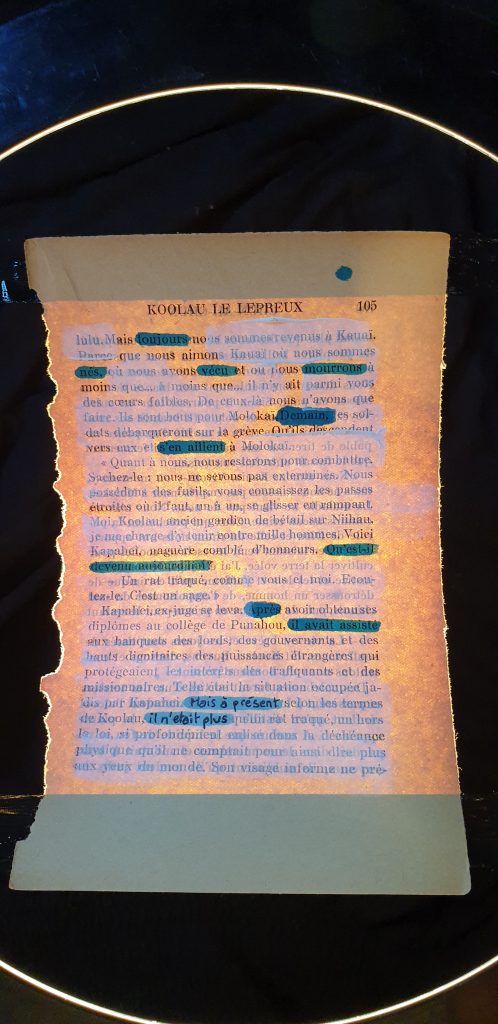 KOOLAU LE LEPREUX 105
lulu. Mais toujours nous sommes revenus à Kauaï.
Parce que nous aimons Kauaï où nous sommes
nés, où nous avons vécu et où nous mourrons à
moins que... à moins que... il n'y ait parmi vous
des cœurs faibles. De ceux-là nous n'avons que
faire. Ils sont bons pour Molokaï. Demain, les sol-
dats débarqueront sur la grève. Qu'ils descendent
vers eux et s'en aillent à Molokaï.
« Quant à nous, nous resterons pour combattre.
Sachez-le : nous ne serons pas exterminés. Nous
possédons des fusils, vous connaissez les passes
étroites où il faut, un à un, se glisser en rampant.
Moi, Koolau, ancien gardien de bétail sur Niihau,
je me charge d'y tenir contre mille hommes. Voici
Kapaheï, naguère comblé d'honneurs. Qu'est-il
devenu aujourd'hui?
— Un rat traqué, comme vous et moi. Ecou-
tez-le. C'est un sage. »
Kapaheï, ex-juge se leva. Après avoir obtenu ses
diplômes au collège de Punahou, il avait assisté
aux banquets des lords, des gouvernants et des
hauts dignitaires des puissances étrangères qui
protégeaient les intérêts des trafiquants et des
missionnaires. Telle était la situation occupée ja-
dis par Kapaheï. Mais à présent selon les termes
de Koolau, il n'était plus qu'un rat traqué, un hors
la loi, si profondément enlisé dans la déchéance
physique qu'il ne comptait pour ainsi dire plus
aux yeux du monde. Son visage informe ne pré-